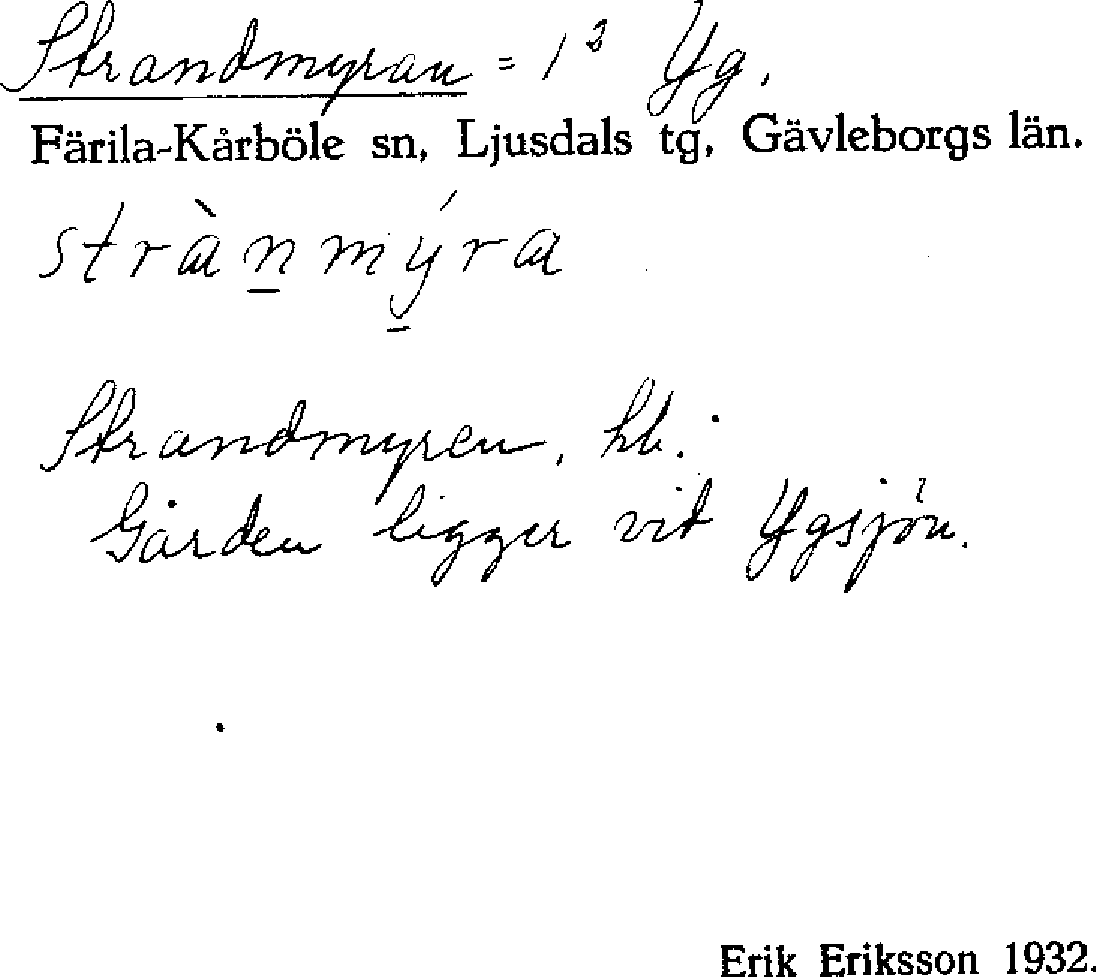 Strandmyran = 1² Yg.
Färila-Kårböle sn, Ljusdals tg, Gävleborgs län.
strànmýra
Strandmyren, hb.
Gården ligger vid Ygsjön.
Erik Eriksson 1932.